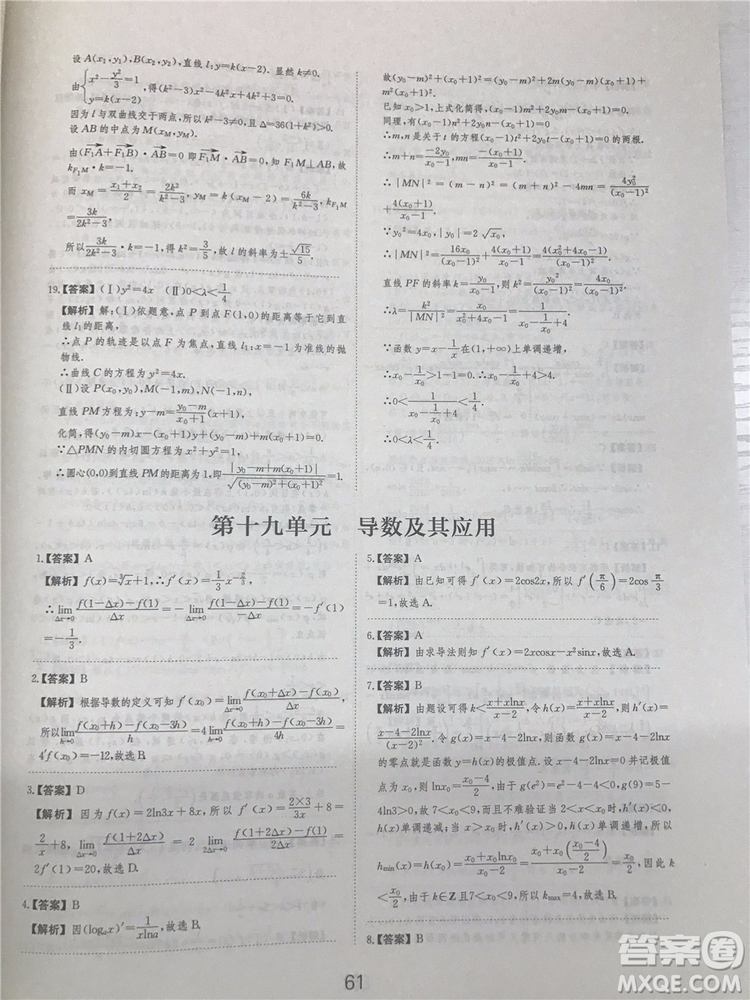 设 A(x₁,y₁),B(x₂,y₂),直线 l:y=k(x-2). 显然 k≠0.
由{x²-y²/3=1 y=k(x-2),得(k²-3)x²-4k²x+4k²+3=0.
因为 l 与双曲线交于两点,所以 k²-3≠0,且 Δ=36(1+k²)>0.
设 AB 的中点为 M(x_M,y_M).
由(F₁A+F₁B)·AB=0 即 F₁M·AB=0,知 F₁M⊥AB,故
k_{F₁M}·k=-1.
而 x_M=(x₁+x₂)/2=2k²/(k²-3),y_M=k(x_M-2)=6k/(k²-3),k_{F₁M}
=3k/(2k²-3),
所以 3k/(2k²-3)·k=-1,得 k²=3/5,故 l 的斜率为±√15/5.
19.【答案】(Ⅰ)y²=4x (Ⅱ)0<λ<1/4
【解析】解:(Ⅰ)依题意,点 P 到点 F(1,0)的距离等于它到直
线 l₁的距离,
∴点 P 的轨迹是以点 F 为焦点,直线 l₁:x=-1 为准线的抛
物线.
∴曲线 C 的方程为 y²=4x.
(Ⅱ)设 P(x₀,y₀),M(-1,m),N(-1,n),
直线 PM 的方程为:y-m=(y₀-m)/(x₀+1)(x+1),
化简,得(y₀-m)x-(x₀+1)y+(y₀-m)+m(x₀+1)=0.
∵△PMN 的内切圆方程为 x²+y²=1,
∴圆心(0,0)到直线 PM 的距离为 1,即|y₀-m+m(x₀+1)|/√((y₀-m)²+(x₀+1)²)=1.
故(y₀-m)²+(x₀+1)²=(y₀-m)²+2m(y₀-m)(x₀+1)+
m²(x₀+1)².
已知 x₀>1,上式化简得,(x₀-1)m²+2y₀m-(x₀+1)=0.
同理,有(x₀-1)n²+2y₀n-(x₀+1)=0.
∴m,n 是关于 t 的方程(x₀-1)t²+2y₀t-(x₀+1)=0.
∴m+n=-2y₀/(x₀-1),mn=-(x₀+1)/(x₀-1).
∴|MN|²=(m-n)²=(m+n)²-4mn=4y₀²/(x₀-1)²
+4(x₀+1)/(x₀-1).
∵y₀²=4x₀,|y₀|=2√x₀,
∴|MN|²=16x₀/(x₀-1)²+4(x₀+1)/(x₀-1)=2√((x₀²+4x₀-1)/(x₀-1)²).
直线 PF 的斜率 k=y₀/(x₀-1),则 k=|y₀/(x₀-1)|=2√x₀/|x₀-1|.
∴λ=k²/|MN|²=x₀/(x₀²+4x₀-1)=1/(x₀-1/x₀+4).
∵函数 y=x-1/x在(1,+∞)上单调递增,
∴x₀-1/x₀>1-1=0. ∴x₀-1/x₀+4>4.
∴0<1/(x₀-1/x₀+4)<1/4.
∴0<λ<1/4.
第十九单元 导数及其应用
1.【答案】A
【解析】f(x)=∛x+1,∴f′(x)=(1/3)x^(-2/3)
∴lim(Δx→0) (f(1-Δx)-f(1))/Δx=-lim(Δx→0) (f(1-Δx)-f(1))/(-Δx)=-f′(1)
=-1/3.
2.【答案】B
【解析】根据导数的定义可知 f′(x₀)=lim(Δx→0) (f(x₀+Δx)-f(x₀))/Δx,
所以lim(h→0) (f(x₀+h)-f(x₀-3h))/h=4lim(h→0) (f(x₀+h)-f(x₀-3h))/4h=
4f′(x₀)=-12,故选 B.
3.【答案】D
【解析】因为 f(x)=2ln3x+8x,所以 f′(x)=(2×3)/3x+8=
2/x+8,lim(Δx→0) (f(1+2Δx)-f(1))/Δx=2 lim(Δx→0) (f(1+2Δx)-f(1))/2Δx=
2f′(1)=20,故选 D.
4.【答案】B
【解析】因(logₐx)′=1/(xlna),故选 B.
5.【答案】A
【解析】由已知可得 f′(x)=2cos2x,所以 f′(π/6)=2cosπ/3
=1,故选 A.
6.【答案】A
【解析】由求导法则知 f′(x)=2xcosx-x²sinx,故选 A.
7.【答案】B
【解析】由题设可得 k<(x+xlnx)/(x-2),令 h(x)=(x+xlnx)/(x-2),则 h′(x)=
(x-4-2lnx)/(x-2)². 令 g(x)=x-4-2lnx=0,即 g(x)=x-4-2lnx
的零点就是函数 y=h(x)的极值点. 设极值点为 x₀,并记此时
lnx₀=(x₀-4)/2,则 7<x₀<9,由于 g(e²)=e²-4-4>0,g(9)=5-
4ln3>0,故 7<x₀<9,而且不难验证当 2<x<x₀时,h′(x)<0,
h(x)单调递减;当 x>x₀时,h′(x)>0,h(x)单调递增,所以
h_min(x)=h(x₀)=(x₀+x₀lnx₀)/(x₀-2)=(x₀+x₀((x₀-4)/2))/(x₀-2)=x₀/2,因此 k
<x₀/2,由于 k∈Z 且 7<x₀<9,所以 k_max=4,故选 B.
8.【答案】B
61
答案圈
MXQE.COM